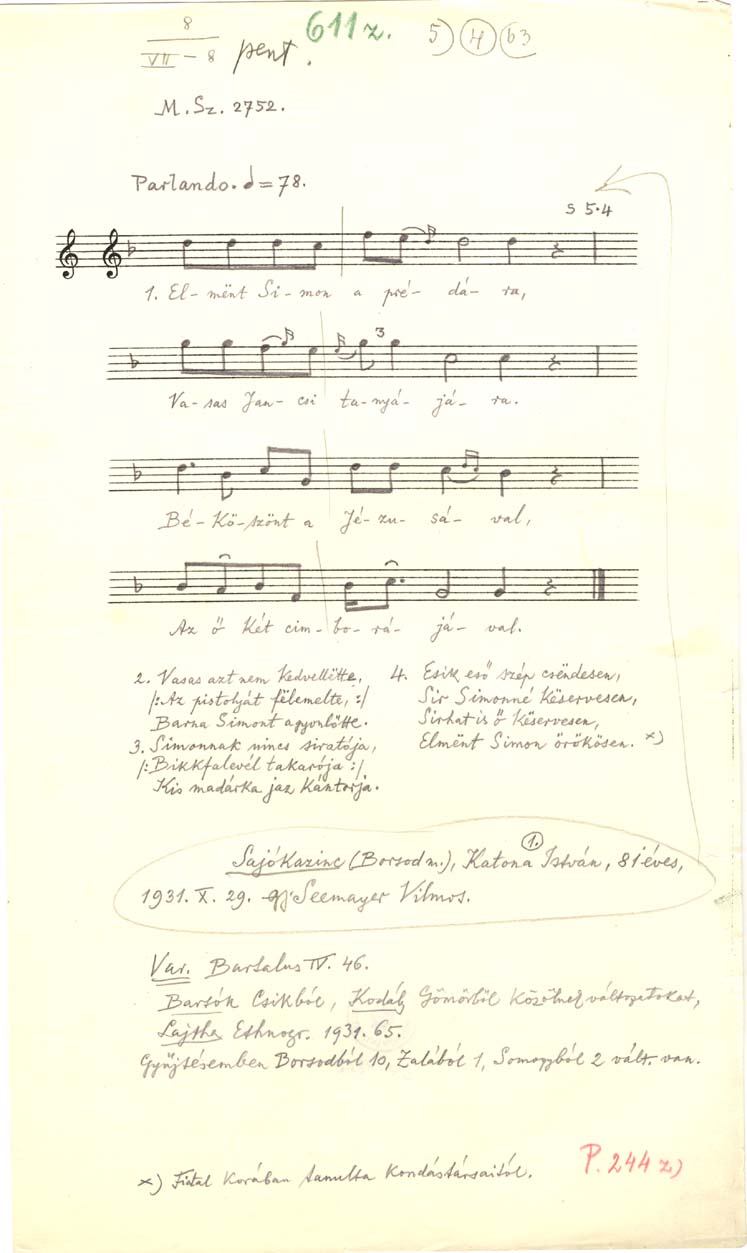 8
VII - 8 pent.
611z. 5) 4 63
M. Sz. 2752.
Parlando. = 78.
s 5.4
1. El- mënt Si- mon a pré- dá- ra,
3
Va- sas Jan- csi ta- nyá- já- ra.
Bé- kö- szönt a Jé- zu- sá- val,
Az ő két cim- bo- rá- já- val.
2. Vasas azt nem kedvellëtte,
/: Az pistolyát fëlemelte, :/
Barna Simont agyonlőtte.
3. Simonnak nincs siratója,
/: Bikkfalevél takarója :/
Kis madárka jaz kántorja.
4. Esik eső szép csëndesen,
Sir Simonné këservesen,
Sirhat is ő këservesen,
Elmënt Simon örökösen. x)
1.
Sajókazinc (Borsod m.), Katona István, 81 éves,
1931. X. 29. gy. Seemayer Vilmos.
Var. Bartalus IV. 46.
Bartók Csikból, Kodály Gömörből közölnek változatokat,
Lajtha Ethnogr. 1931. 65.
Gyűjtésemben Borsodból 10, Zalából 1, Somogyból 2 vált. van.
x) Fiatal korában tanulta kondástársaitól.
P. 244 z)